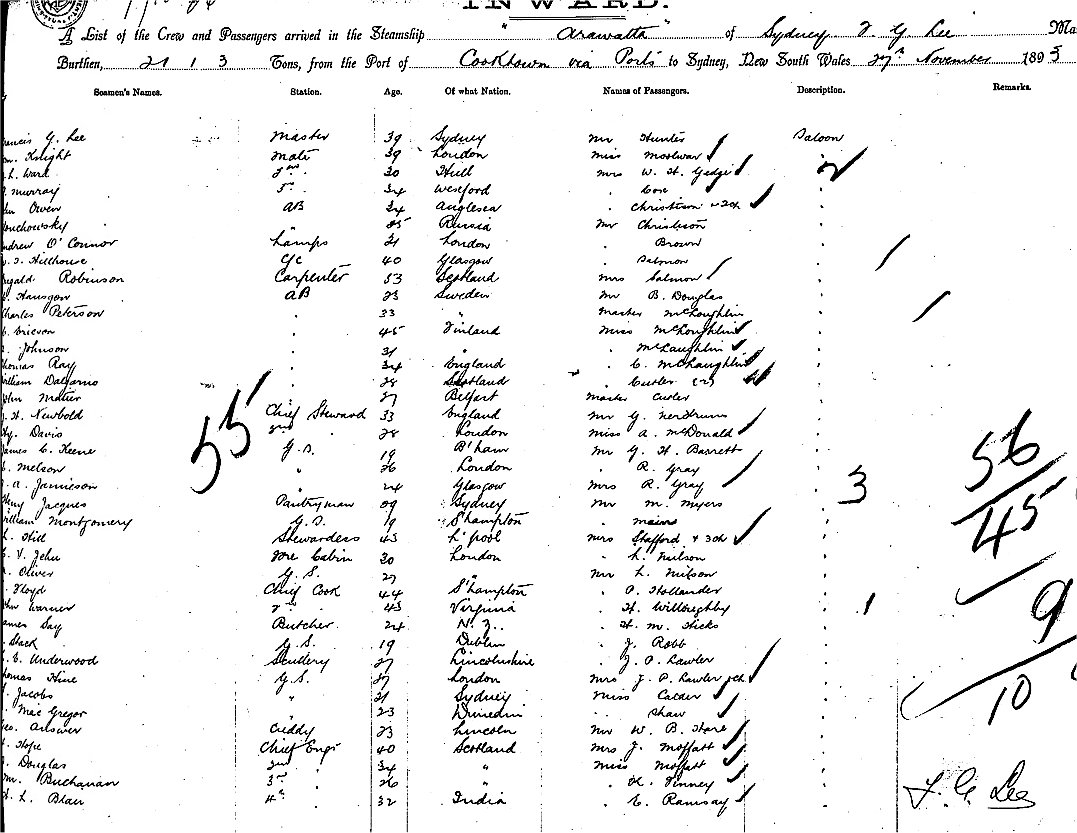 INWARD.
A List of the Crew and Passengers arrived in the Steamship "Arawatta" of Sydney F. G. Lee Ma
Burthen, 2113 Tons, from the Port of Cooktown via Ports to Sydney, New South Wales 27th November 1893
Seamen's Names. Station. Age. Of what Nation. Names of Passengers. Description. Remarks.
rancis G. Lee Master 39 Sydney Mr Hunter Saloon
m. Knight Mate 39 London Miss
h. Ward 2nd 30 Hull Mrs W. H. Gedge 2
Murray 3rd 34 Wexford " Cox
hn Owen AB 34 Anglesea " Christison + 2ch
" Russia Mr Christison
ndrew O'Connor Lamps 21 London " Brown
Hillhouse 40 Glasgow " Salmon
Robinson Carpenter 53 Scotland Mrs Salmon
AB 23 Sweden Mr B. Douglas
Charles Peterson " 33 " Master McLoughlin
" 45 Finland Miss McLoughlin
Johnson " 31 " " McLaughlin
homas Ray " 34 England " C. McLaughlin
illiam Dalgarno " 28 Scotland " Cutler (2)
ohn " 27 Belfast Master Cutler
H. Newbold Chief Steward 33 England Mr G.
Hy. Davis 2nd 28 London Miss A. McDonald
James C. Keene G.S. 19 B'ham Mr G. H. Barrett
Melson " 26 London " R. Gray
a. Jamieson " 24 Glasgow Mrs R. Gray 3
Jacques Pantryman Sydney Mr M. Myers
illiam Montgomery G.S. 19 S'hampton "
Hill Stewardess 43 L'pool Mrs Stafford + 3ch
Fore Cabin 30 London " L. Neilson
Oliver G.S. 27 " Mr L. Neilson
Floyd Chief Cook 44 S'hampton " Hollander
ohn Warner 2nd 43 Virginia " H. Willoughby 1
ames Day Butcher 24 N.Z. " H. M. Hicks
Slack G.S. 19 Dublin " J. Robb
E. Underwood Scullery 27 Lincolnshire " J. P. Lawler
homas Hine G.S. 27 London Mrs J. P. Lawler + ch
Jacobs " 21 Sydney Miss Calder
MacGregor 23 Dunedin " Shaw
eo. Cuddy 23 Lincoln Mr W. B. Hare
Hope Chief Engr 40 Scotland Mrs J. Moffatt
Douglas 2nd 34 " Miss Moffatt
m. Buchanan 3rd 26 " " Finney
H. L. Blair 4th 32 India " C. Ramsay
55
56
45
9
10
F. G. Lee